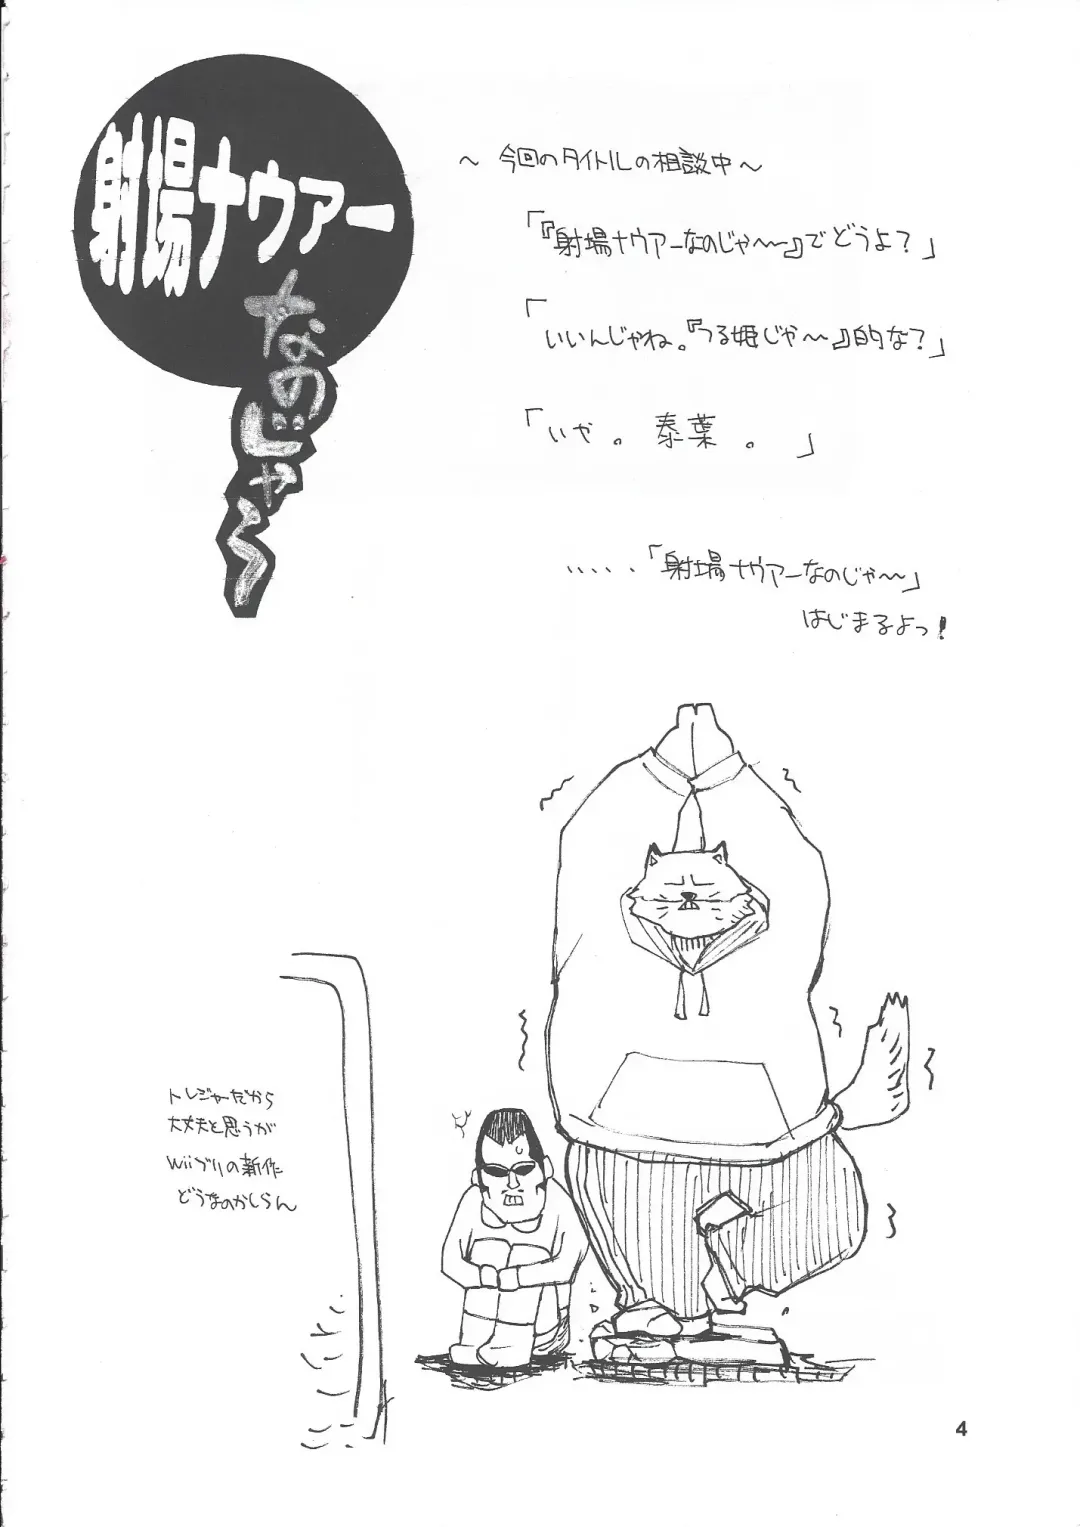 射場ナウアー
なのじゃ〜
〜 今回のタイトルの相談中 〜
「『射場ナウアーなのじゃ〜〜』でどうよ？」
「いいんじゃね。『つる姫じゃ〜〜』的な？」
「いや。泰葉。」
、、、、、「射場ナウアーなのじゃ〜〜」
はじまるよっ！
トレジャーだから
大丈夫と思うが
Wiiブリの新作
どうなのかしらん
4